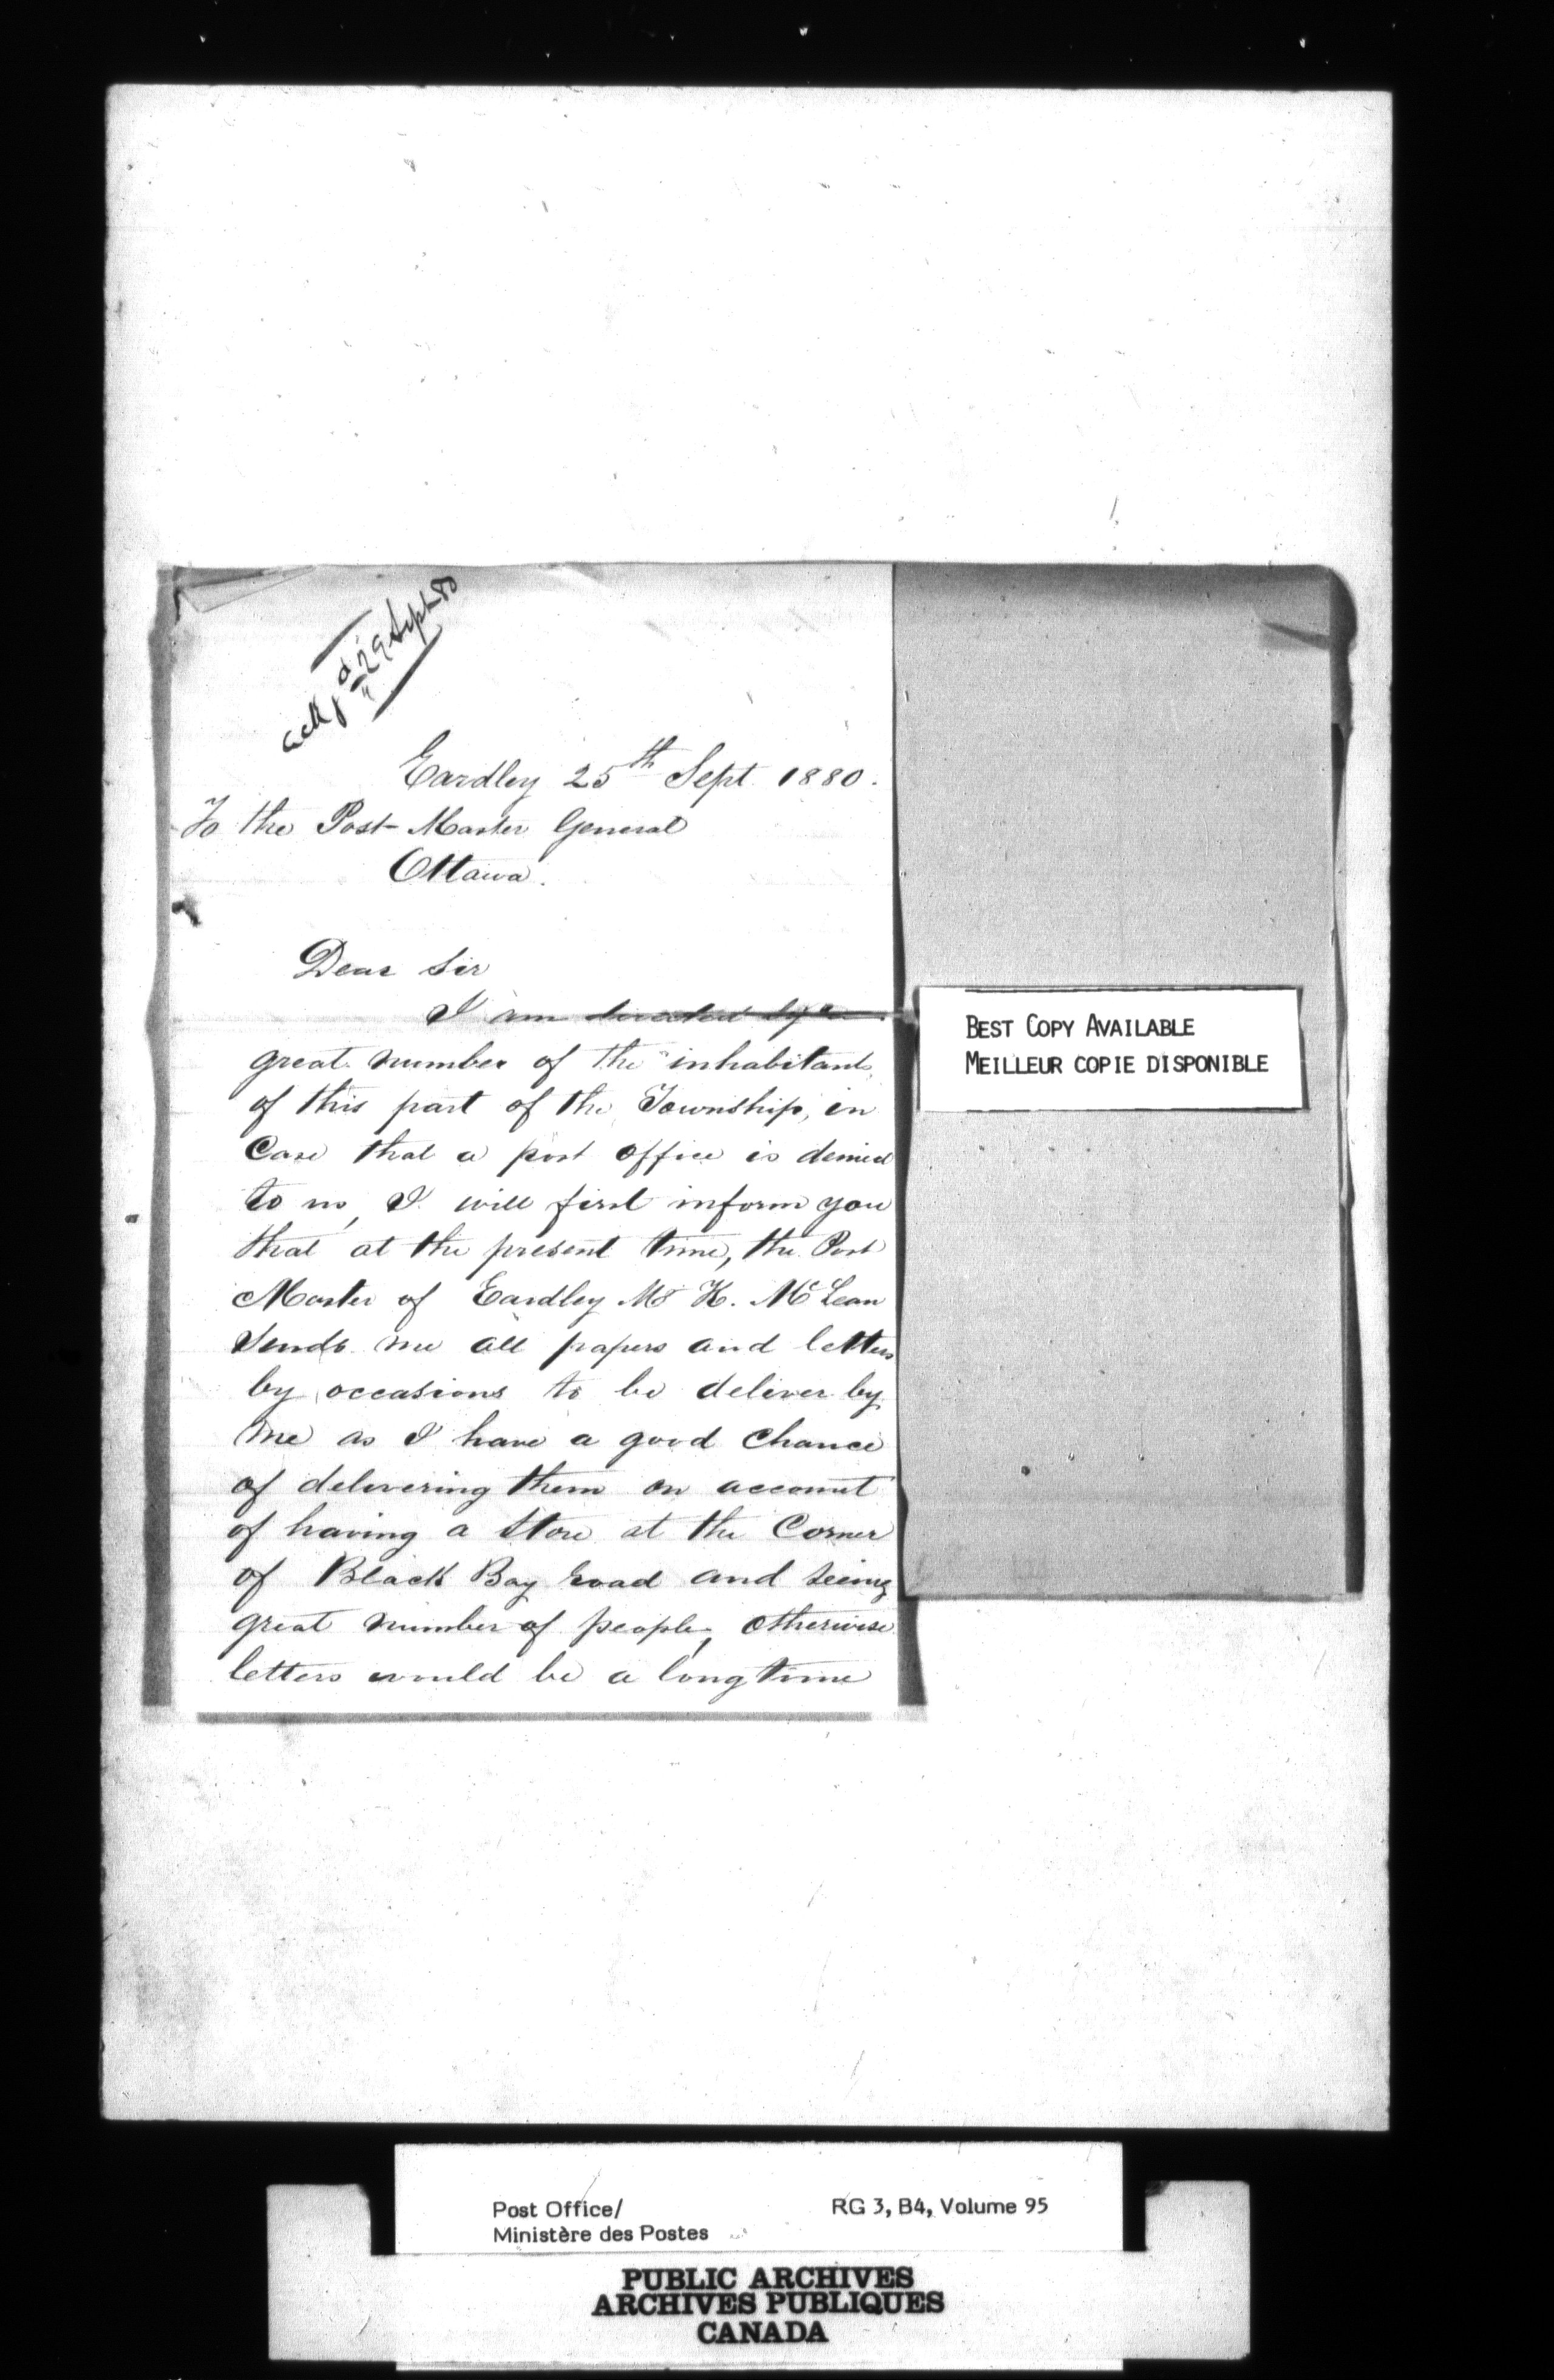 ackd 29 Sept 80
Eardley 25th Sept. 1880.
To the Post-Master General
Ottawa.
Dear Sir
I am directed by a
great number of the inhabitants
of this part of the Township, in
Case that a post office is denied
to us, I will first inform you
that at the present time, the Post
Master of Eardley Mr H. McLean
Sends me all papers and letters
by occasions to be deliver by
me as I have a good Chance
of delivering them on account
of having a Store at the Corner
of Black Bay road and seeing
great number of people, otherwise
letters would be a long time
BEST COPY AVAILABLE
MEILLEUR COPIE DISPONIBLE
Post Office/
Ministère des Postes
RG 3, B4, Volume 95
PUBLIC ARCHIVES
ARCHIVES PUBLIQUES
CANADA